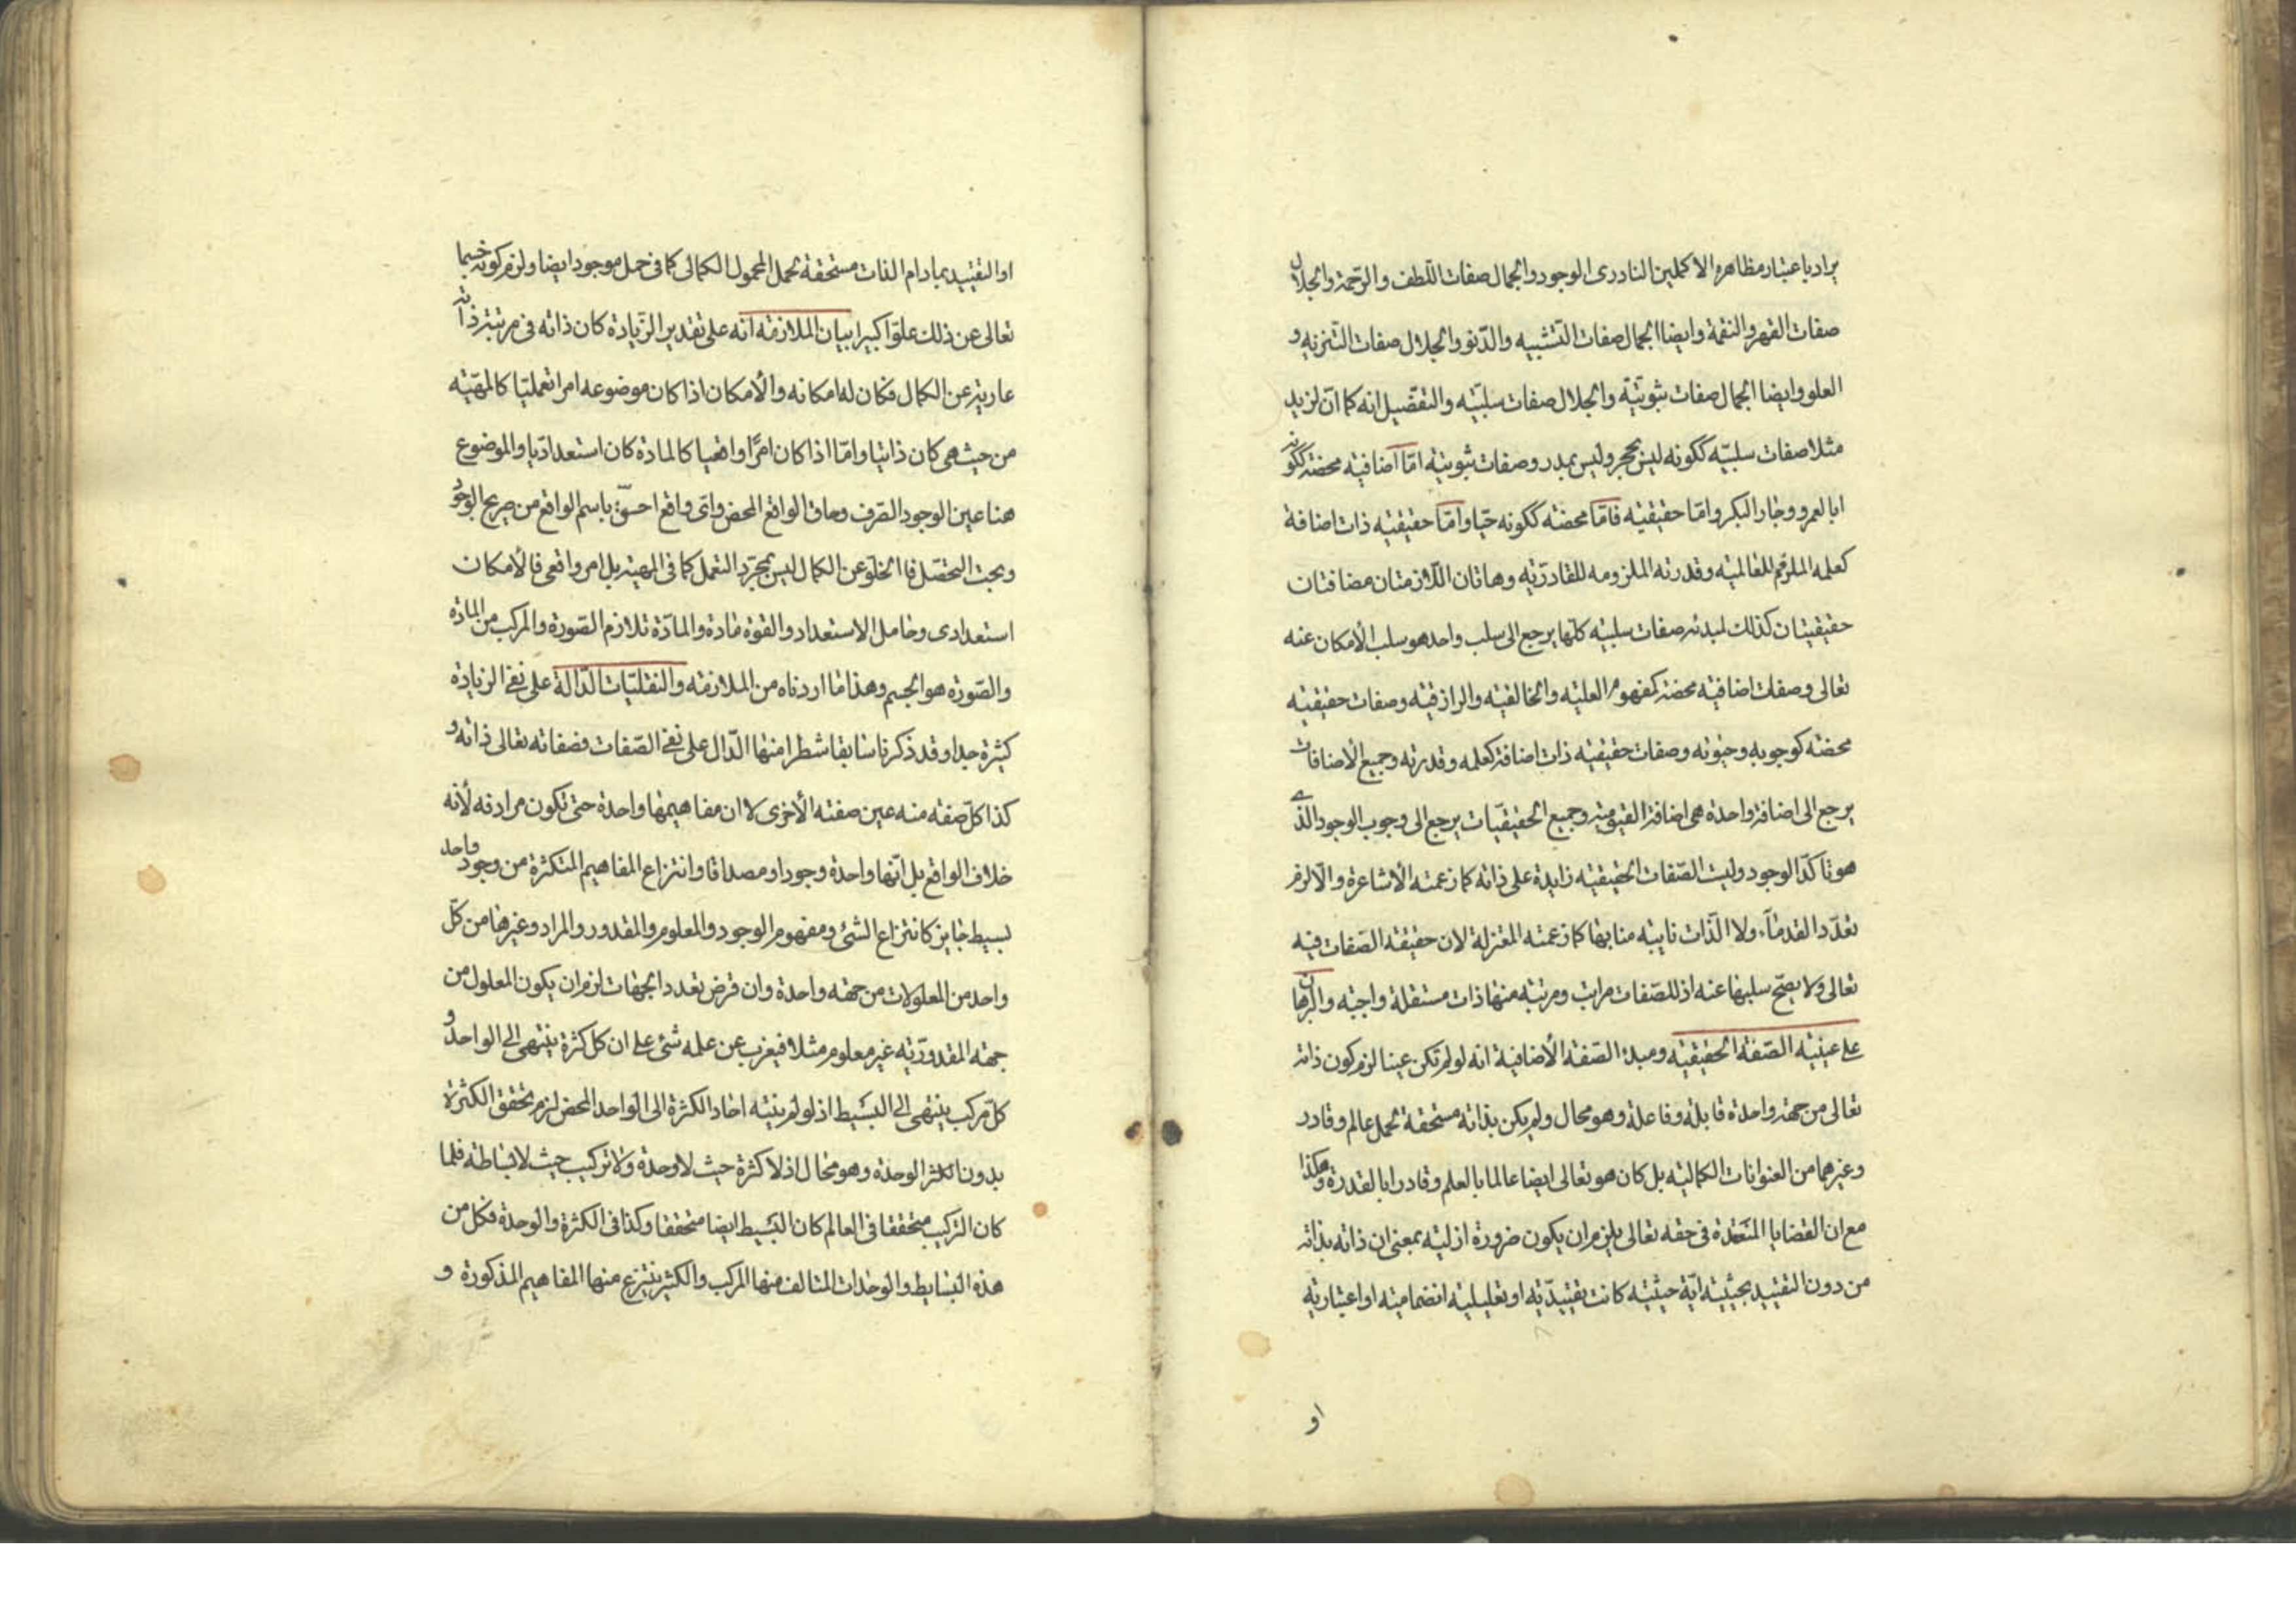 يراد باعتبار مظاهره الاكملين النادرى الوجود والجمال صفات اللّطف والرّحمة والجلال
صفات القهر والنقمة وايضا الجمال صفات التّشبيه والدّنو والجلال صفات التّنزيه و
العلو وايضا الجمال صفات ثبوتيّة والجلال صفات سلبيّه والتفصّيل انه كما انّ لزيد
مثلا صفات سلبيّه ككونه ليس بحجر وليس بمدر وصفات ثبوتيه امّا اضافيه محضة ككونه
ابا لعمرو وجار البكر وامّا حقيقيّه فامّا محضته ككونه حيّا وامّا حقيقيّه ذات اضافة
كعلمه الملزوم للعالميّه وقدرته الملزومه للقادريّه وهاتان اللّازمتان مضافتان
حقيقيتان كذلك لمبدئه صفات سلبيّه كلّها يرجع الى سلب واحد هو سلب الأمكان عنه
تعالى وصفات اضافيّه محضة كمفهوم العليّه والخالقيّه والرازقيّه وصفات حقيقيّه
محضته كوجوبه وحيوته وصفات حقيقيّه ذات اضافة كعلمه وقدرته وجميع الأضافات
يرجع الى اضافة واحدة هى اضافة القيوميّه وجميع الحقيقيّات يرجع الى وجوب الوجود الذى
هو تاكّد الوجود وليت الصّفات الحقيقيّه زايدة على ذاته كما زعمته الأشاعرة والّا لزم
تعدّد القدمآء ولا الذّات نايبه منابها كما زعمته المعتزلة لان حقيقة الصّفات فيه
تعالى ولا يصحّ سلبها عنه اذ للصّفات مراتب ومرتبه منها ذات مستقلة واجبه والبرهان
على عينيّه الصّفة الحقيقيّه ومبدء الصّفة الأضافية انه لو لم تكن عينا لزم كون ذاته
تعالى من جهة واحدة قابلة وفاعلة وهو محال ولم يكن بذاته مستحقة لحمل عالم وقادر
وغيرهما من العنوانات الكماليّه بل كان هو تعالى ايضا عالما بالعلم وقادرا بالقدرة وهكذا
مع ان القضايا المنعقدة فى حقه تعالى يلزم ان يكون ضرورة ازليّه بمعنى ان ذاته بذاته
من دون التقييد بحيثيّه ايّة حيثيّه كانت تقييديّه او تعليليّه انضماميّه او اعتباريّه
او
او التقييد بما دام الذات مستحقة لحمل المحمول الكمالى كما فى حمل موجود ايضا ولزم كونه جسما
تعالى عن ذلك علوّا كبيرا بيان الملازمه انه على تقدير الزّيادة كان ذاته فى مرتبة ذاته
عارية عن الكمال فكان له امكانه والأمكان اذا كان موضوعه امرا تعمليّا كالمهيّه
من حيث هى كان ذاتيا وامّا اذا كان امرًا واقعيا كالمادة كان استعداديّا والموضوع
هنا عين الوجود الصّرف وحاق الواقع المحض واى واقع احسق باسم الواقع من صريح الوجود
وبحت التحصّل فالخلوّ عن الكمال ليس بمجرّد التعمل كما فى المهيّة بل امر واقعى فالأمكان
استعدادى وحامل الاستعداد والقوة مادة والمادّة تلازم الصّورة والمركب من المادة
والصّورة هو الجسم وهذا ما اردناه من الملازمه والنقليّات الدّالة على نفى الزيادة
كثيرة جدا وقد ذكرنا سابقا شطرا منها الدّال على نفى الصّفات فصفاته تعالى ذاته و
كذا كلّ صفه منه عين صفته الأخرى لا ان مفاهيمها واحدة حتى تكون مرادفه لأنه
خلاف الواقع بل انّها واحدة وجودا ومصداقا وانتزاع المفاهيم المتكثرة من وجود واحد
بسيط جايز كانتزاع الشئ ومفهوم الوجود والمعلوم والمقدور والمراد وغيرها من كلّ
واحد من المعلولات من جهة واحدة وان فرض تعدد الجهات لزم ان يكون المعلول من
جهة المقدوريّه غير معلوم مثلا فيعزب عن علمه شئ على ان كل كثرة ينتهى الى الواحد و
كلّ مركب ينتهى الى البسيط اذ لو لم ينته احاد الكثرة الى الواحد المحض لزم تحقق الكثرة
بدون تكثر الوحدة وهو محال اذ لا كثرة حيث لا وحدة ولا تركيب حيث لا بساطة فلما
كان التركيب متحققا فى العالم كان البسيط ايضا متحققا وكذا فى الكثرة والوحدة فكل من
هذه البسايط والوحدات المتالف منها المركب والكثير ينتزع منها المفاهيم المذكورة و